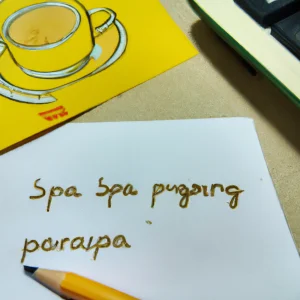 Spa Spa pugaing
paraipa